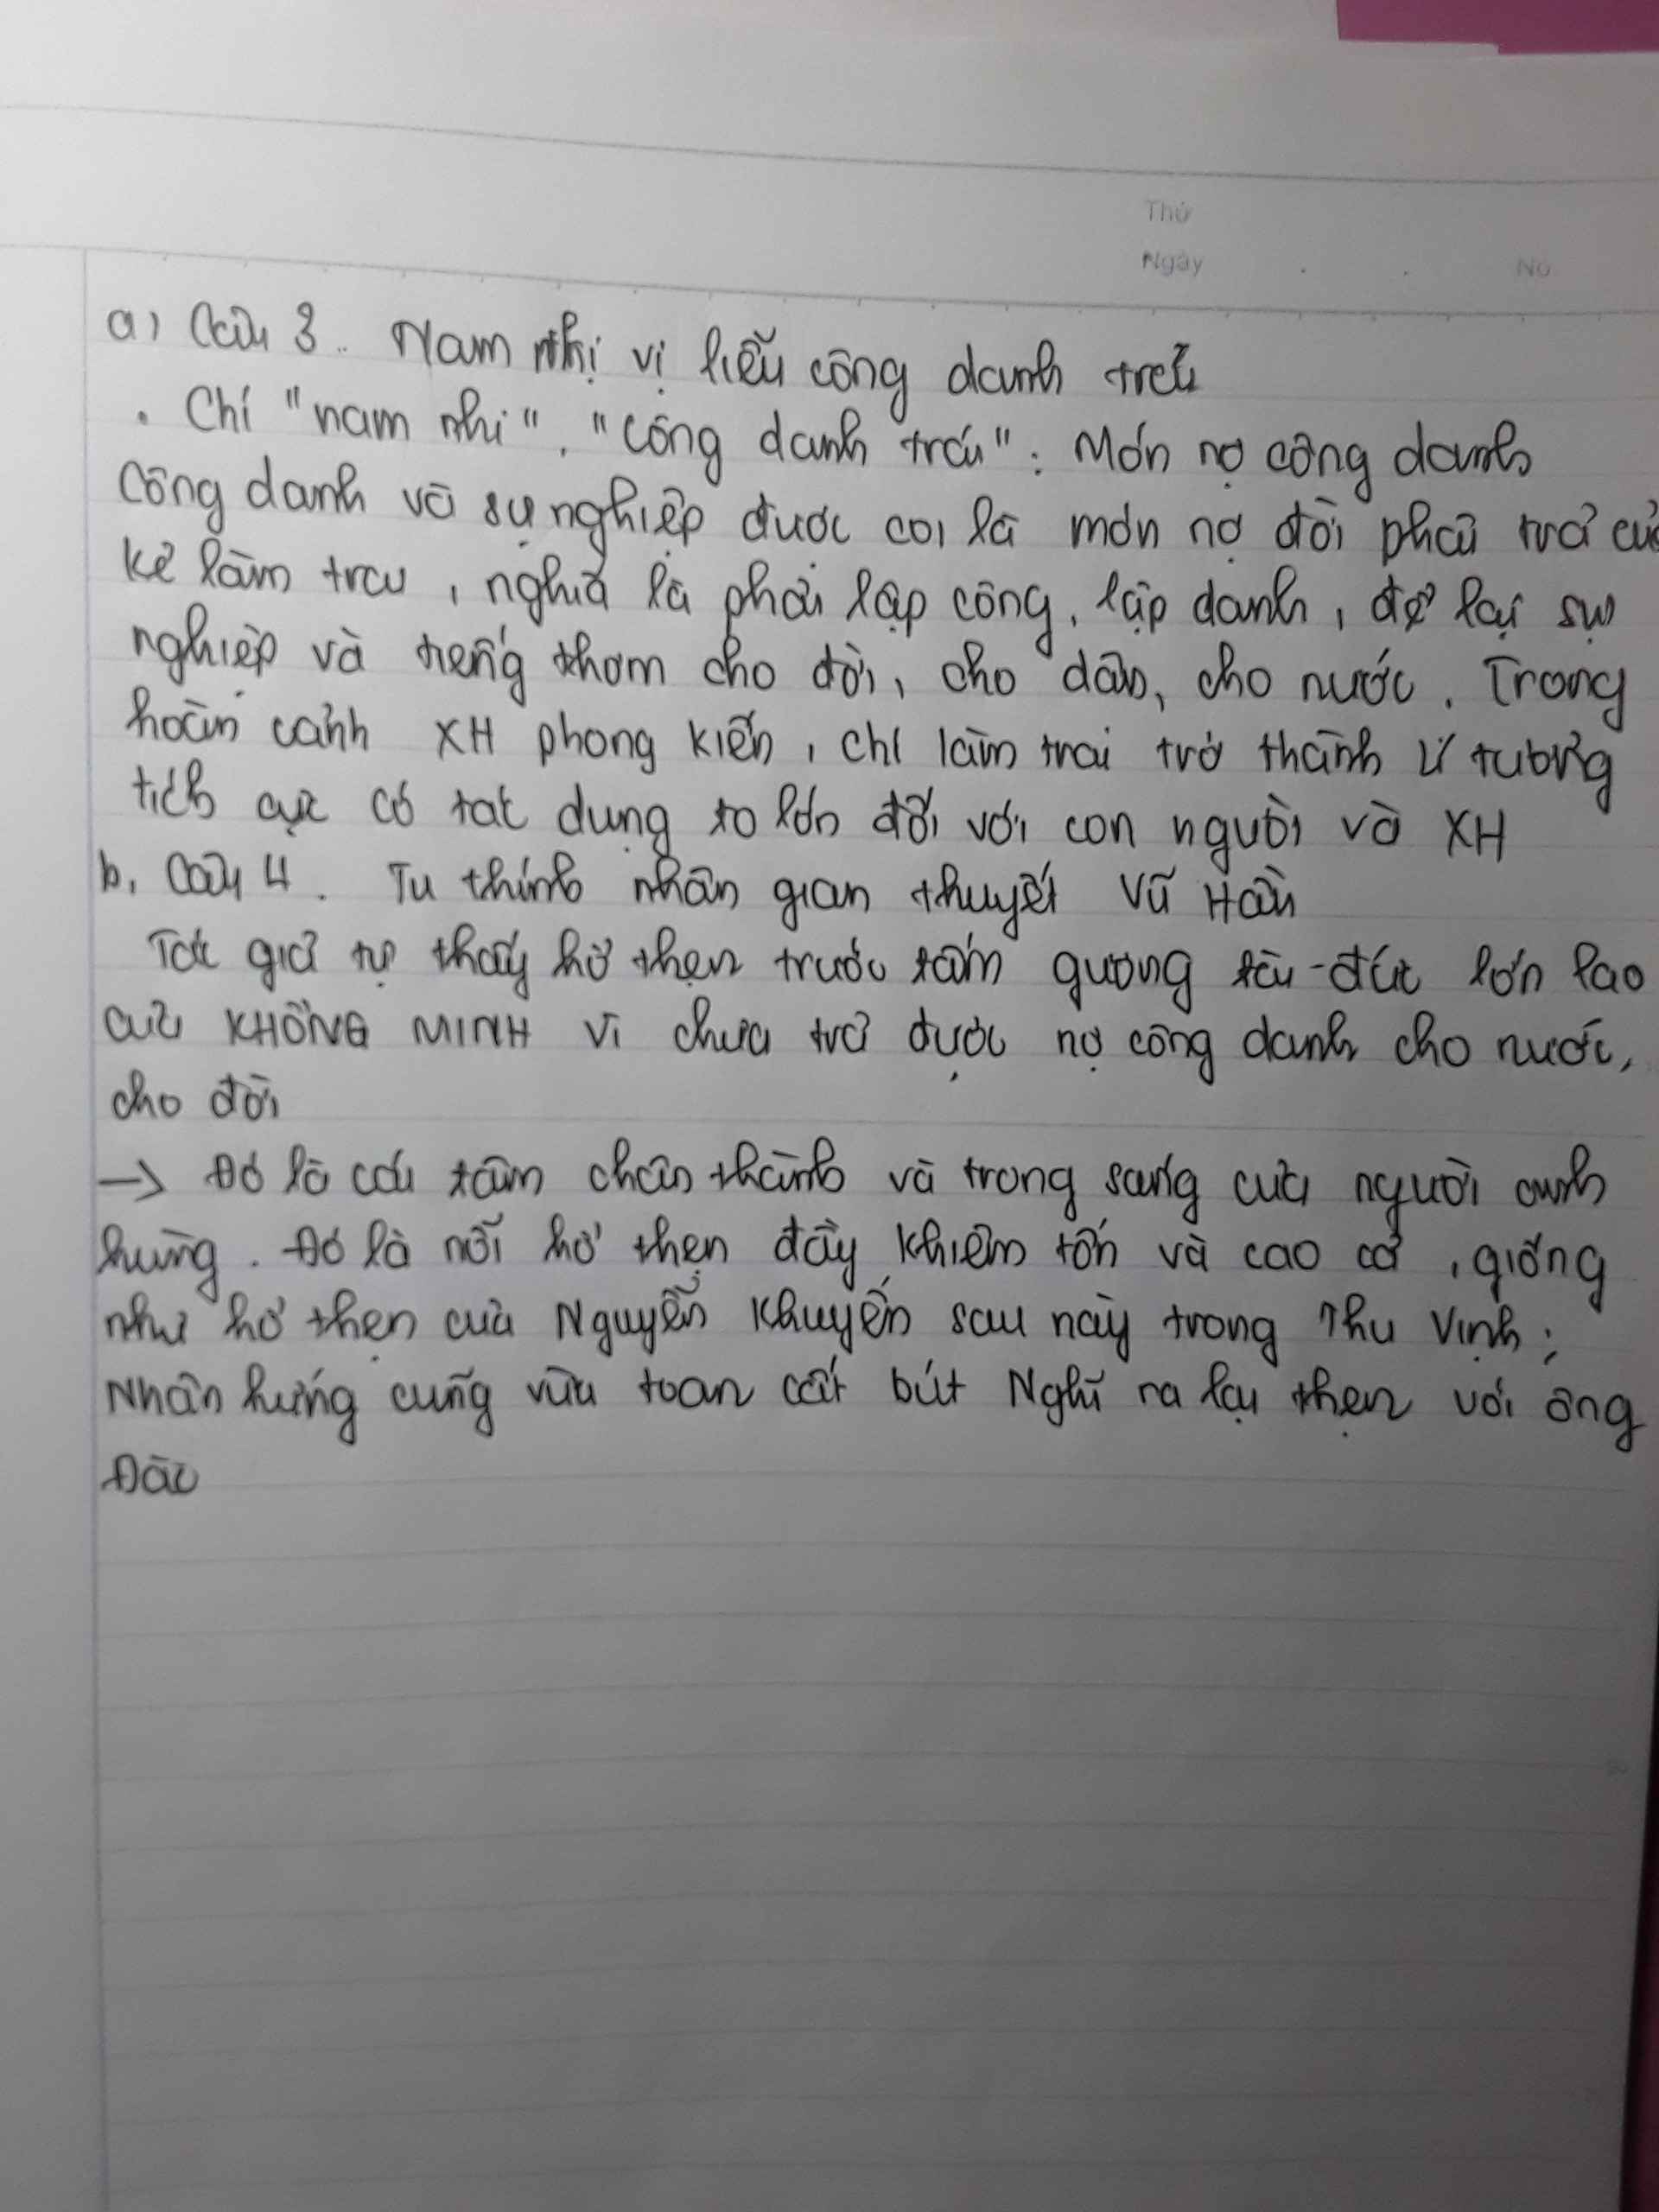 Thứ
Ngày . . No
a) Câu 3.. Nam nhị vị liễu công danh trái
. Chí "nam nhi", "Công danh trái": Món nợ công danh
Công danh và sự nghiệp được coi là món nợ đời phải trả củ
kẻ làm trai, nghĩa là phải lập công, lập danh, để lại sự
nghiệp và tiếng thơm cho đời, cho dân, cho nước. Trong
hoàn cảnh XH phong kiến, chí làm trai trở thành lí tưởng
tích cực có tác dụng to lớn đối với con người và XH
b, Câu 4. Tu thính nhân gian thuyết Vũ Hầu
Tác giả tự thấy hổ thẹn trước tấm gương tài-đức lớn lao
của KHỔNG MINH vì chưa trả được nợ công danh cho nước,
cho đời
→ Đó là cái tâm chân thành và trong sáng của người anh
hùng. Đó là nỗi hổ thẹn đầy khiêm tốn và cao cả, giống
như hổ thẹn của Nguyễn Khuyến sau này trong Thu Vịnh:
Nhân hứng cũng vừa toan cất bút Nghĩ ra lại thẹn với ông
Đào